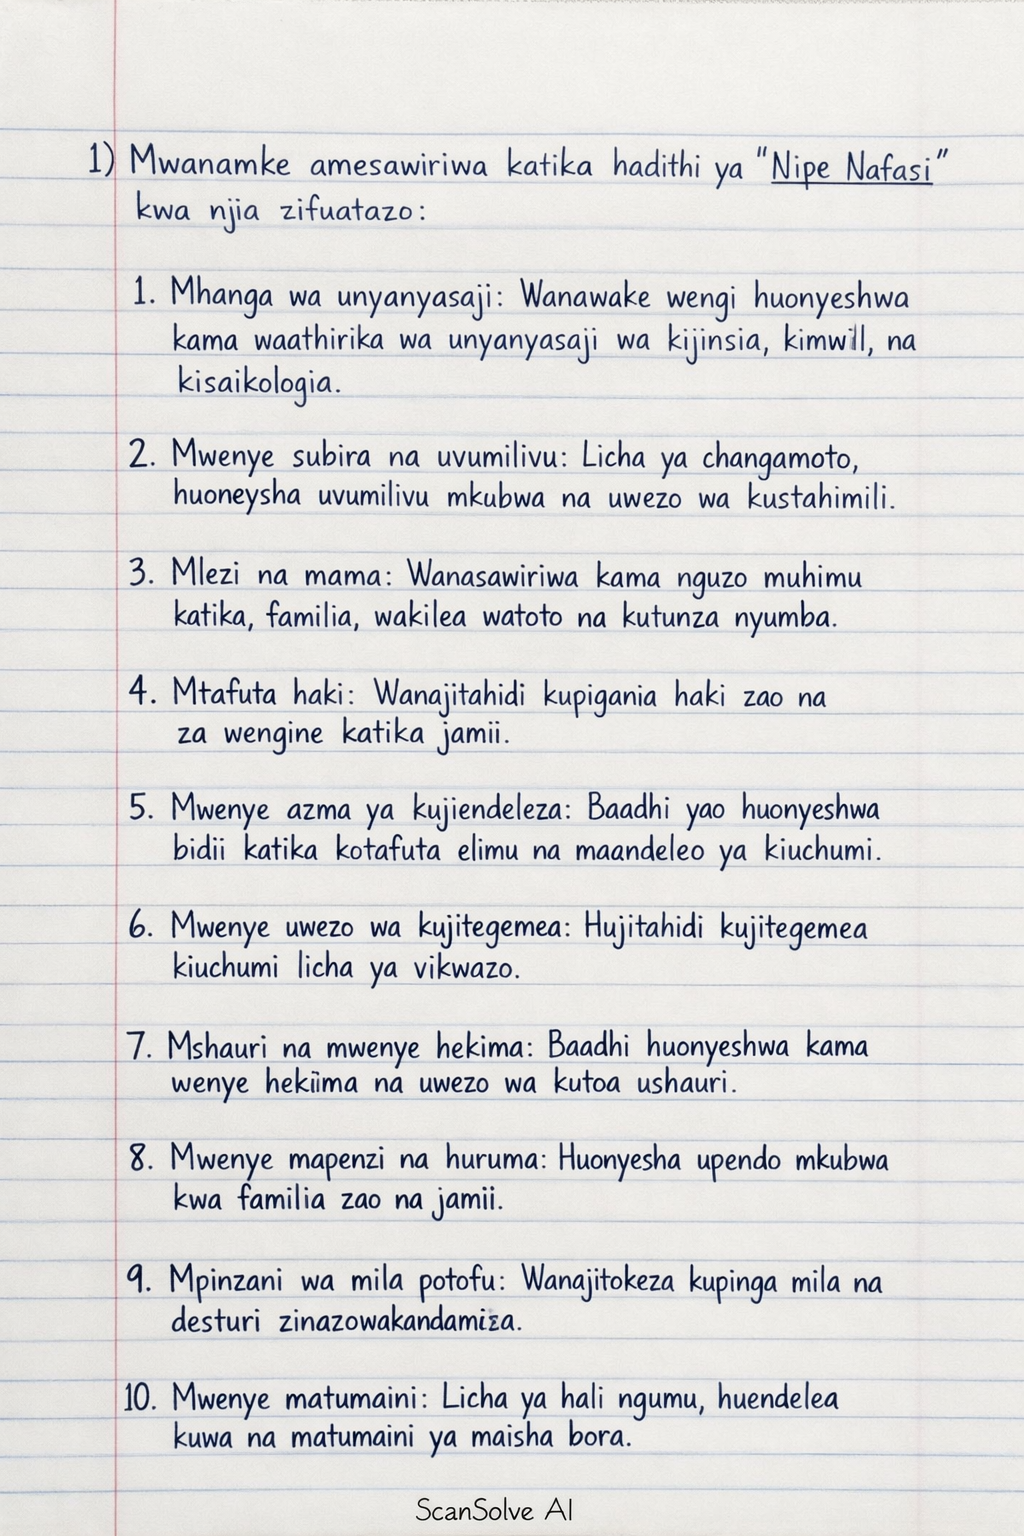 1) Mwanamke amesawiriwa katika hadithi ya "Nipe Nafasi"
kwa njia zifuatazo:
1. Mhanga wa unyanyasaji: Wanawake wengi huonyeshwa
kama waathirika wa unyanyasaji wa kijinsia, kimwill, na
kisaikologia.
2. Mwenye subira na uvumilivu: Licha ya changamoto,
huoneysha uvumilivu mkubwa na uwezo wa kustahimili.
3. Mlezi na mama: Wanasawiriwa kama nguzo muhimu
katika, familia, wakilea watoto na kutunza nyumba.
4. Mtafuta haki: Wanajitahidi kupigania haki zao na
za wengine katika jamii.
5. Mwenye azma ya kujiendeleza: Baadhi yao huonyeshwa
bidii katika kotafuta elimu na maandeleo ya kiuchumi.
6. Mwenye uwezo wa kujitegemea: Hujitahidi kujitegemea
kiuchumi licha ya vikwazo.
7. Mshauri na mwenye hekima: Baadhi huonyeshwa kama
wenye hekiima na uwezo wa kutoa ushauri.
8. Mwenye mapenzi na huruma: Huonyesha upendo mkubwa
kwa familia zao na jamii.
9. Mpinzani wa mila potofu: Wanajitokeza kupinga mila na
desturi zinazowakandamiza.
10. Mwenye matumaini: Licha ya hali ngumu, huendelea
kuwa na matumaini ya maisha bora.
ScanSolve AI